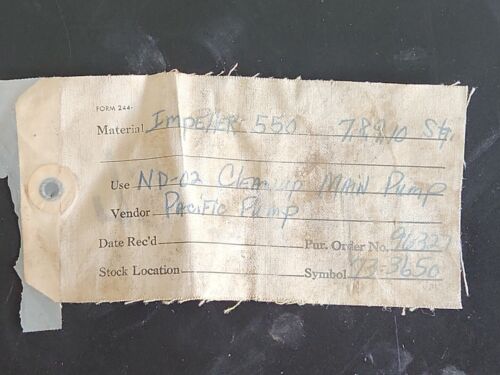 FORM 244-
Material IMPELLER 550 7,8,9,10 Stg.
Use ND-02 Cleanup Main Pump
Vendor Pacific Pump
Date Rec'd Pur. Order No. 96327
Stock Location Symbol 73-3650